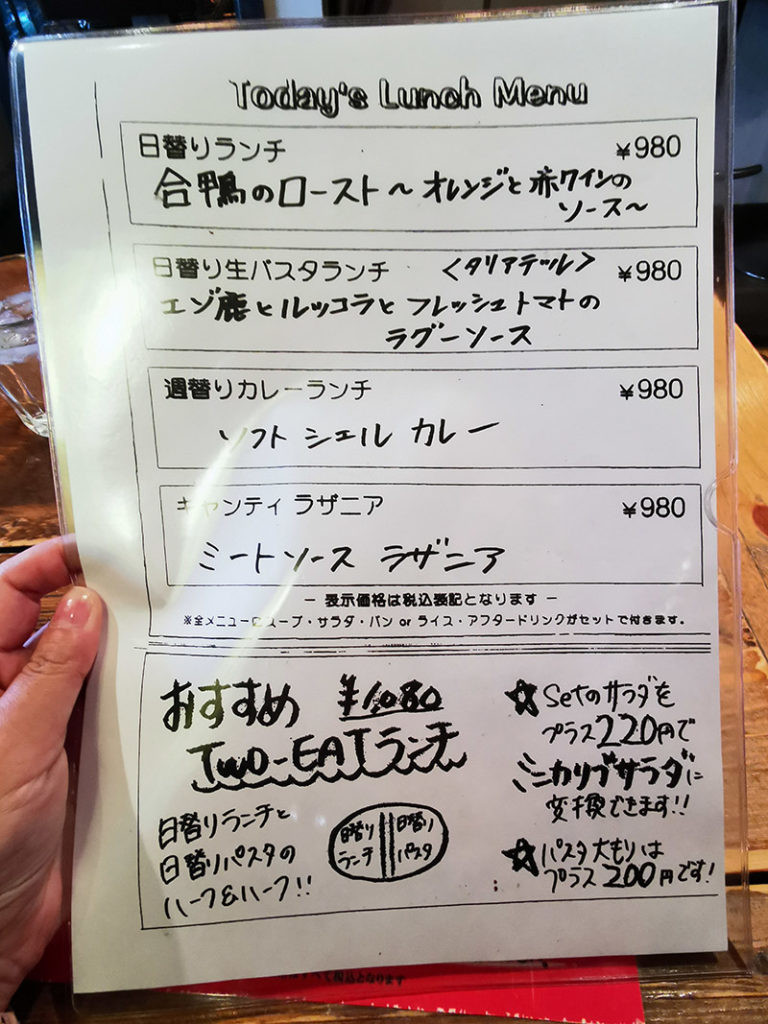 Today's Lunch Menu
日替りランチ ¥980
合鴨のロースト〜オレンジと赤ワインの
ソース〜
日替り生パスタランチ <タリアテッル> ¥980
エゾ鹿とルッコラとフレッシュトマトの
ラグーソース
週替りカレーランチ ¥980
ソフトシェルカレー
キャンティ ラザニア ¥980
ミートソース ラザニア
− 表示価格は税込表記となります −
※全メニューにスープ・サラダ・パン or ライス・アフタードリンクがセットで付きます。
おすすめ ¥1080
TWO-EATランチ
日替りランチと
日替りパスタの
ハーフ&ハーフ!!
日替り
ランチ
日替り
パスタ
☆Setのサラダを
プラス220円で
ミニカリブサラダに
変換できます!!
☆パスタ大もりは
プラス200円です!
税込となります